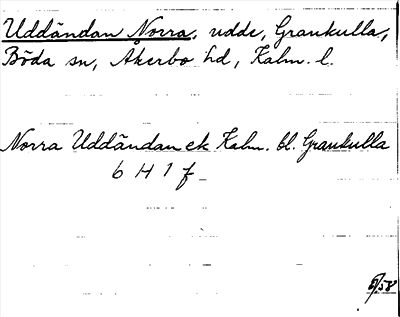 Uddändan Norra, udde, Grankulla,
Böda sn, Åkerbo hd, Kalm. l.
Norra Uddändan ek Kalm. bl. Grankulla
6 H 1 f
/58